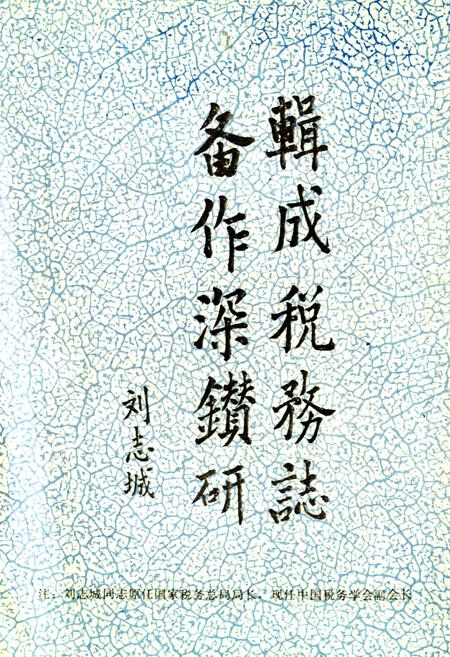 輯成税務誌
备作深鑚研
刘志城
注：刘志城同志原任国家税务总局局长，现任中国税务学会副会长